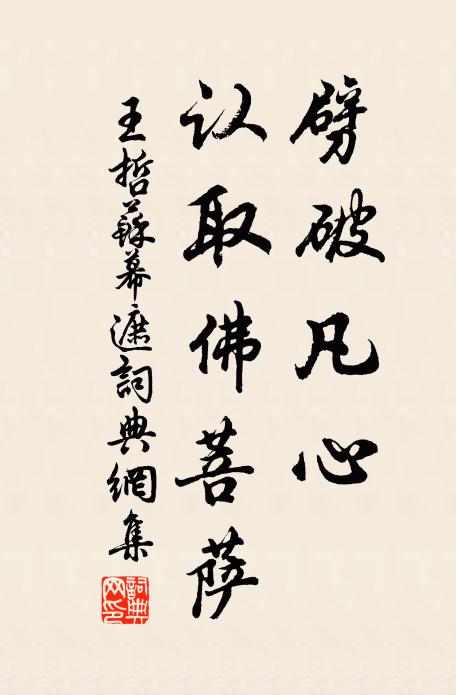 劈破凡心
认取佛菩萨
王哲蘇幕遮詞典網集
詞典网印